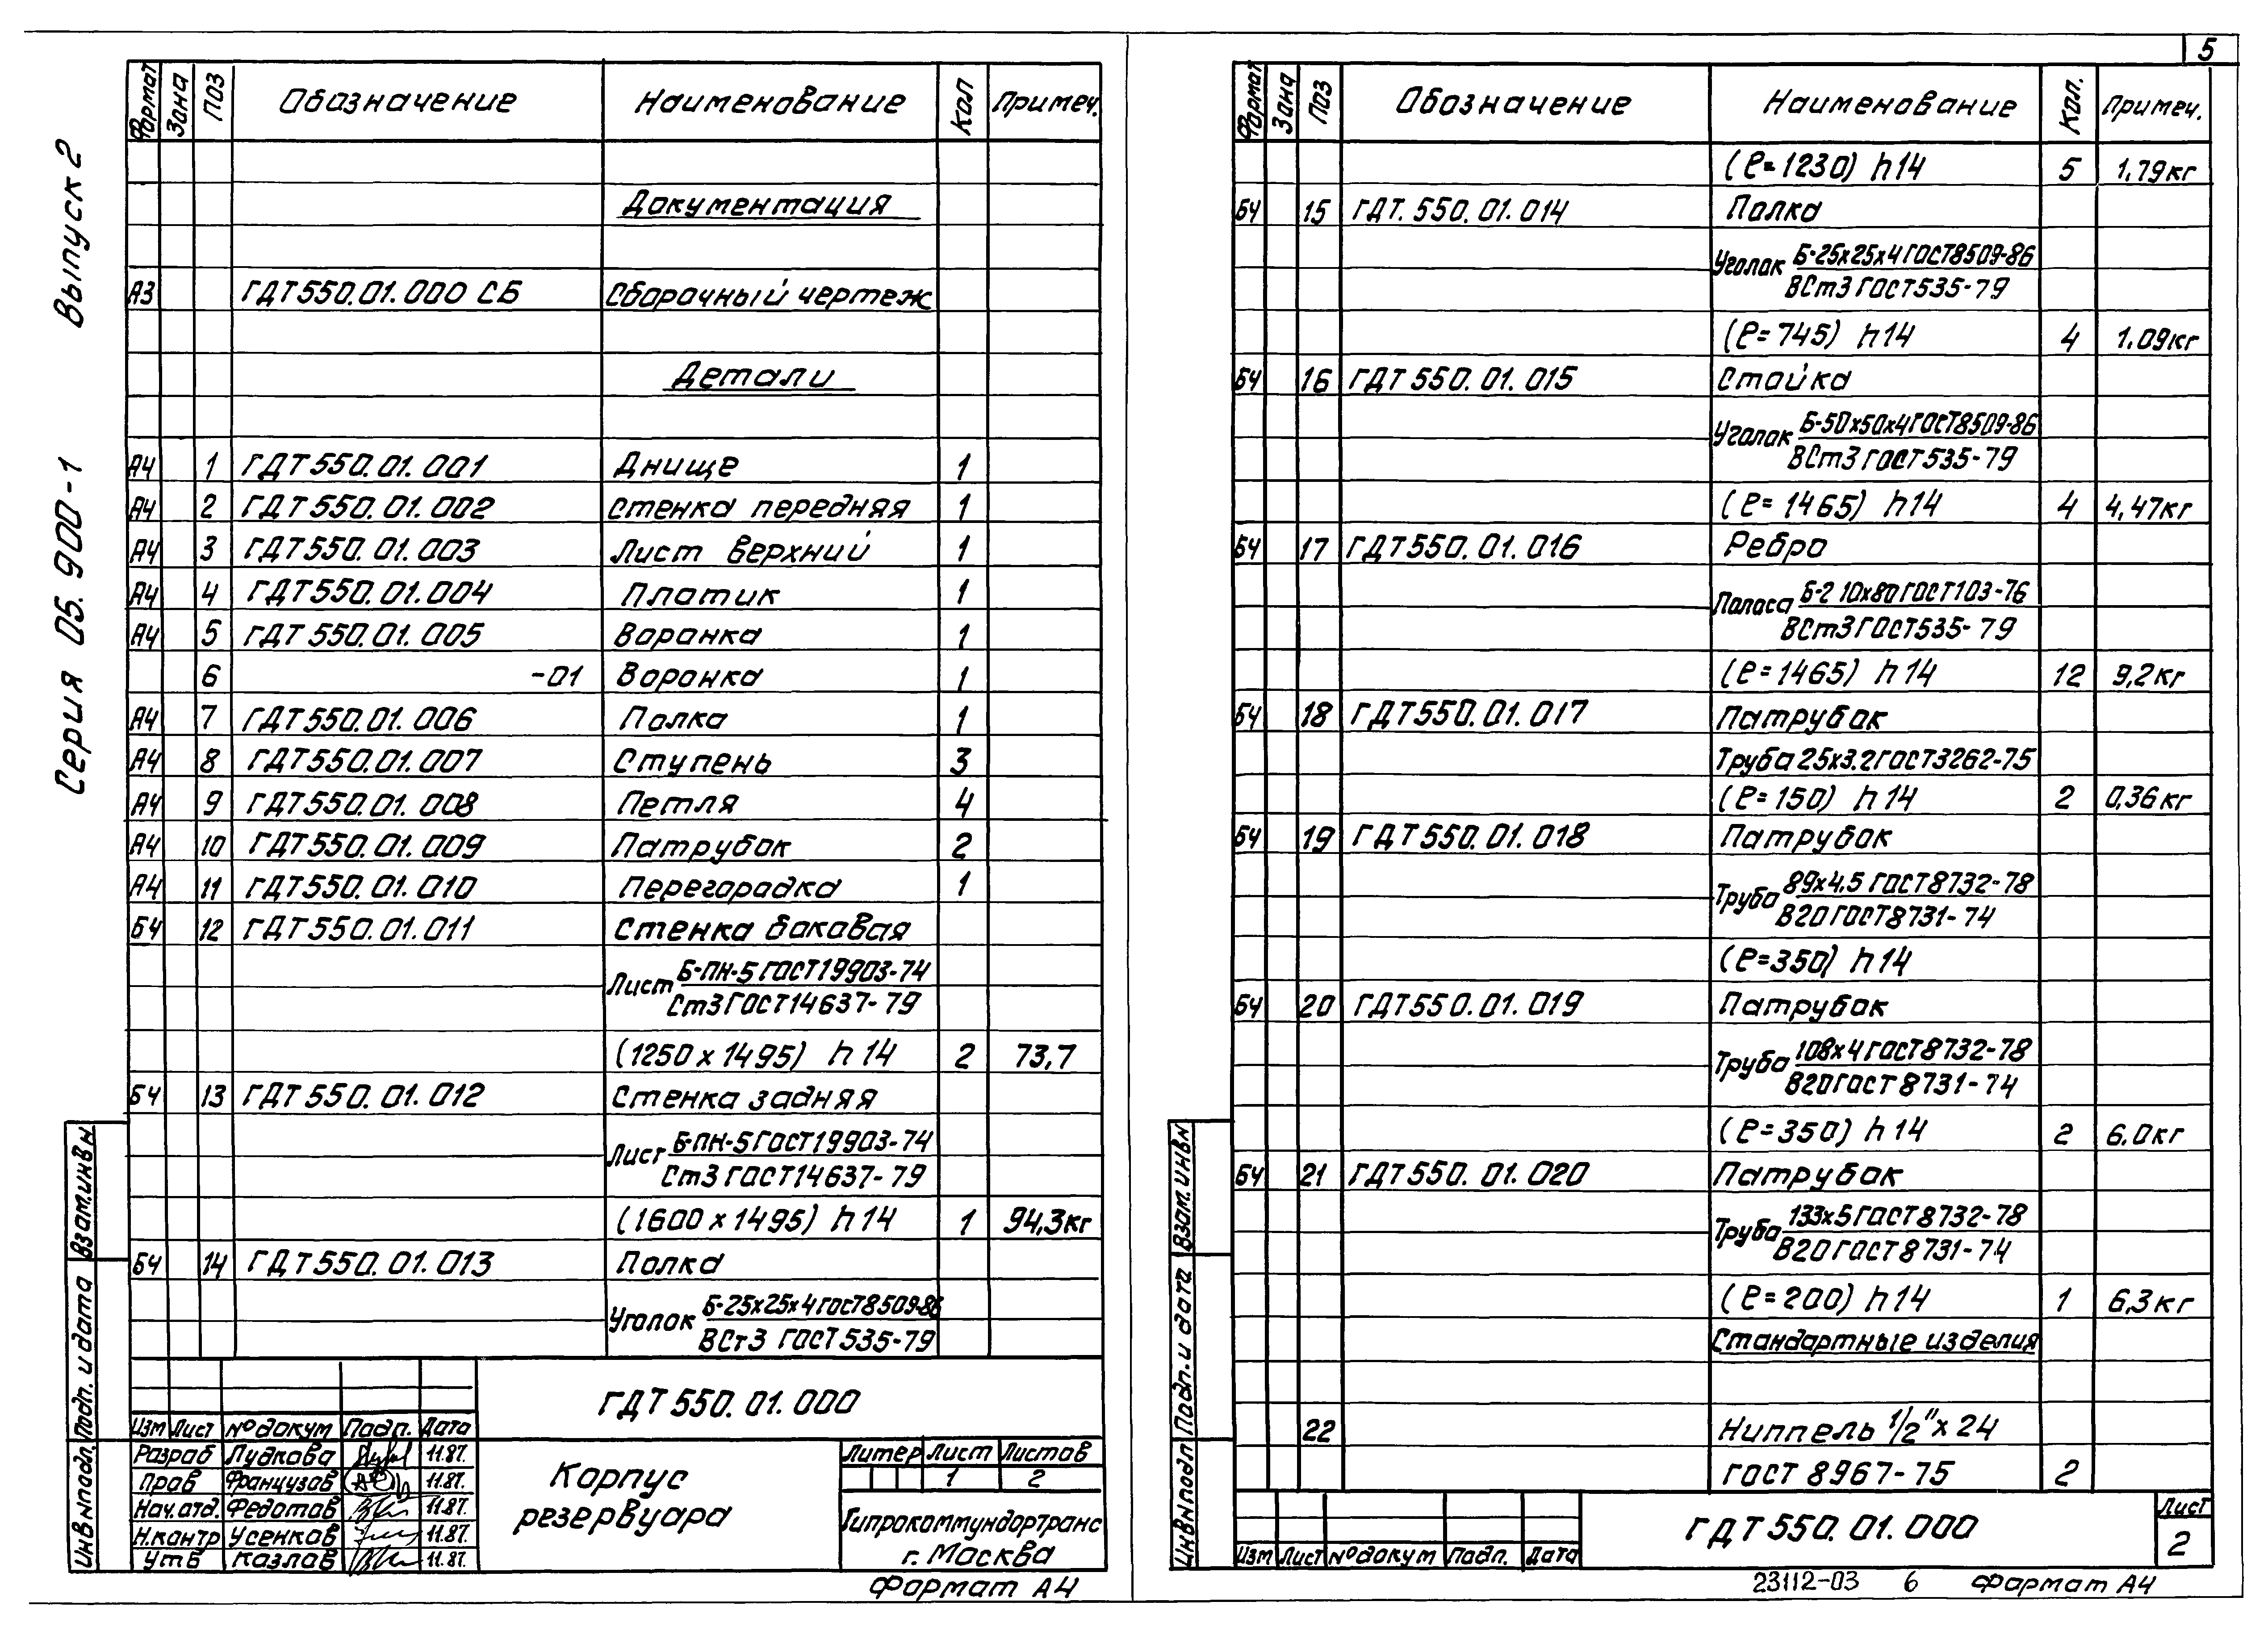 5
Серия 05.900-1 Выпуск 2
Формат Зона Поз Обозначение Наименование Кол Примеч.
Документация
А3 ГДТ550.01.000 СБ Сборочный чертеж
Детали
А4 1 ГДТ550.01.001 Днище 1
А4 2 ГДТ550.01.002 Стенка передняя 1
А4 3 ГДТ550.01.003 Лист верхний 1
А4 4 ГДТ550.01.004 Платик 1
А4 5 ГДТ550.01.005 Воронка 1
6 -01 Воронка 1
А4 7 ГДТ550.01.006 Полка 1
А4 8 ГДТ550.01.007 Ступень 3
А4 9 ГДТ550.01.008 Петля 4
А4 10 ГДТ550.01.009 Патрубок 2
А4 11 ГДТ550.01.010 Перегородка 1
БЧ 12 ГДТ550.01.011 Стенка боковая
Лист Б-ПН-5 ГОСТ19903-74
Ст3 ГОСТ14637-79
(1250 х 1495) h14 2 73,7
БЧ 13 ГДТ550.01.012 Стенка задняя
Лист Б-ПН-5 ГОСТ19903-74
Ст3 ГОСТ14637-79
(1600 х 1495) h14 1 94,3кг
БЧ 14 ГДТ550.01.013 Полка
Уголок Б-25х25х4 ГОСТ8509-86
ВСт3 ГОСТ535-79
ГДТ550.01.000
Изм Лист № докум Подп. Дата
Разраб Лудкова 11.87.
Пров Французов 11.87.
Нач.отд. Федотов 11.87.
Н.контр Усенков 11.87.
Утв Козлов 11.87.
Корпус
резервуара
Литер Лист Листов
1 2
Гипрокоммундортранс
г. Москва
Формат А4
Взам.инв№
Подп. и дата
Инв№подл.
Формат Зона Поз Обозначение Наименование Кол. Примеч.
(ℓ=1230) h14 5 1,79кг
БЧ 15 ГДТ.550.01.014 Полка
Уголок Б-25х25х4 ГОСТ8509-86
ВСт3 ГОСТ535-79
(ℓ=745) h14 4 1.09кг
БЧ 16 ГДТ550.01.015 Стойка
Уголок Б-50х50х4 ГОСТ8509-86
ВСт3 ГОСТ535-79
(ℓ=1465) h14 4 4,47кг
БЧ 17 ГДТ550.01.016 Ребро
Полоса Б-2 10х80 ГОСТ103-76
ВСт3 ГОСТ535-79
(ℓ=1465) h14 12 9,2кг
БЧ 18 ГДТ550.01.017 Патрубок
Труба 25х3.2 ГОСТ3262-75
(ℓ=150) h14 2 0,36кг
БЧ 19 ГДТ550.01.018 Патрубок
Труба 89х4,5 ГОСТ8732-78
В20 ГОСТ8731-74
(ℓ=350) h14
БЧ 20 ГДТ550.01.019 Патрубок
Труба 108х4 ГОСТ8732-78
В20 ГОСТ8731-74
(ℓ=350) h14 2 6,0кг
БЧ 21 ГДТ550.01.020 Патрубок
Труба 133х5 ГОСТ8732-78
В20 ГОСТ8731-74
(ℓ=200) h14 1 6,3кг
Стандартные изделия
22 Ниппель 1/2" х 24
ГОСТ 8967-75 2
Изм Лист № докум Подп. Дата
ГДТ550.01.000
Лист
2
Взам.инв№
Подп. и дата
Инв№подл
23112-03 6 Формат А4